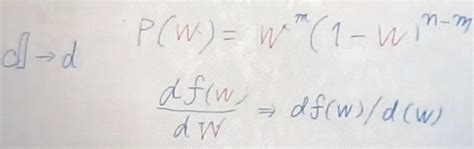 P(w) = w^m (1 - w)^{n-m}
d → d
df(w) / dw ⇒ df(w)/d(w)